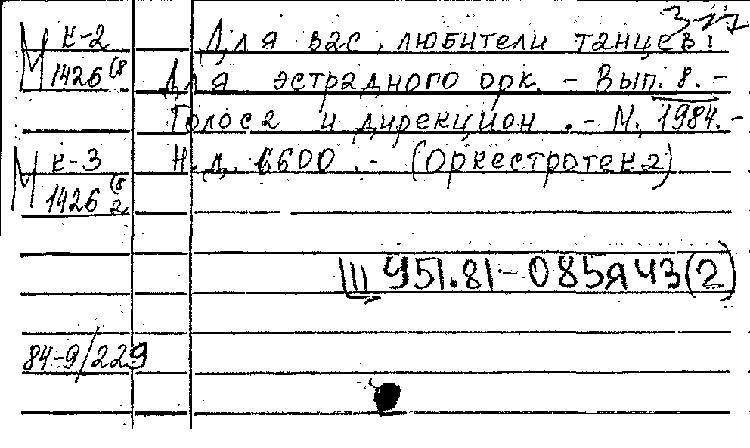 К-2
М 1426(8
Для вас, любители танцев!
Для эстрадного орк. - Вып. 8. -
Голоса и дирекцион. - М, 1984. -
Н. д. 6600. - (Оркестротека)
К-3
М 1426(8
2
Щ 951.81-085я43(2)
84-9/229